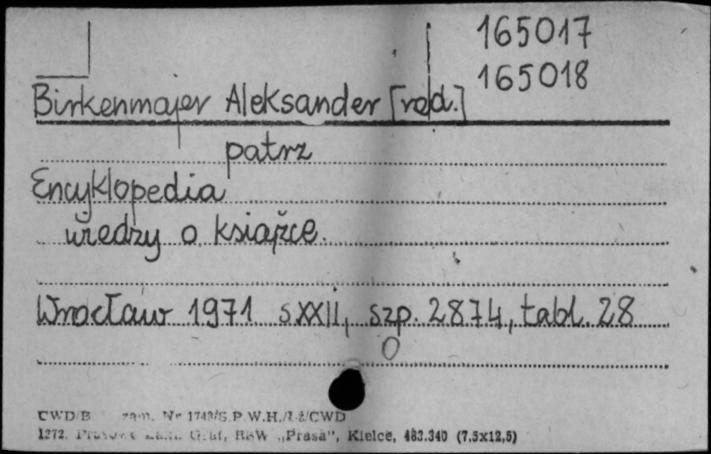 165017
165018
Birkenmajer Aleksander [red.]
patrz
Encyklopedia
wiedzy o książce.
Wrocław 1971 s. XXII, szp. 2874, tabl. 28
0
CWD/B zam. Nr 1743/S.P.W.H./ CWD
1272. Graf, RSW „Prasa", Kielce, 483.340 (7,5x12,5)